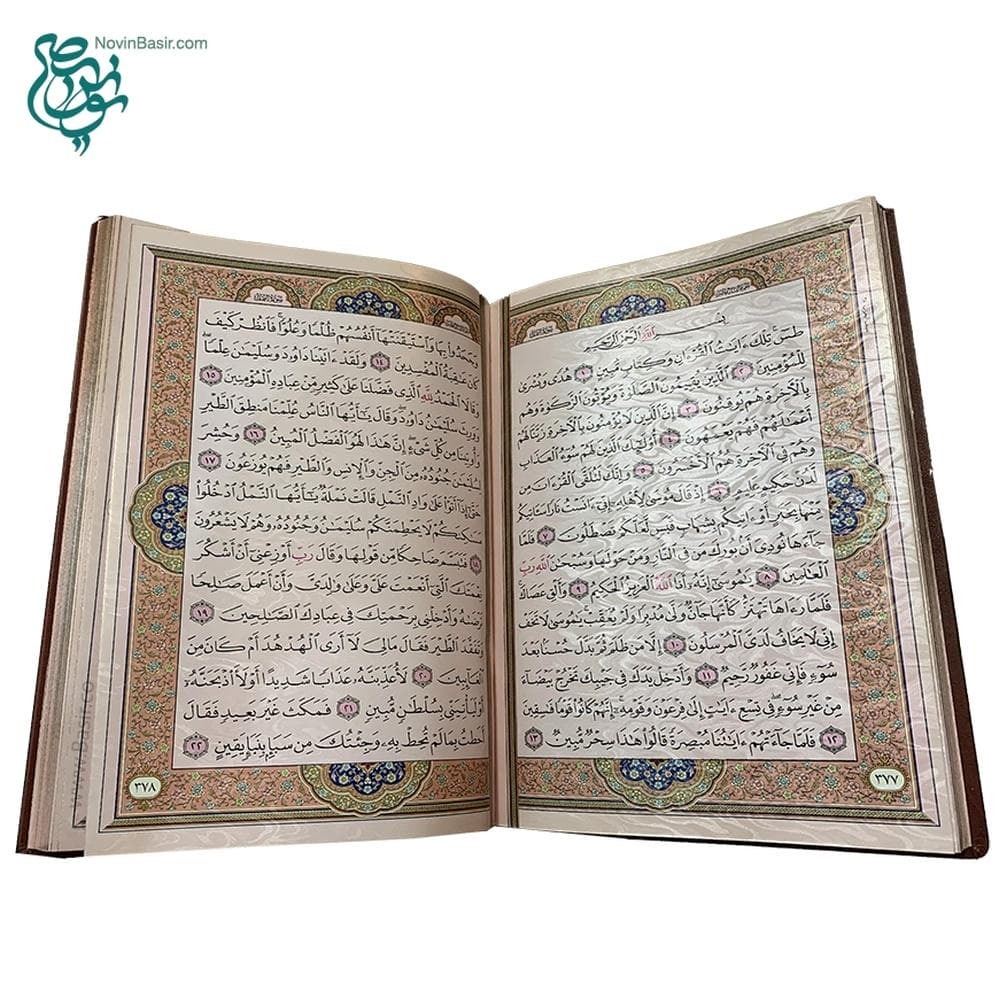 NovinBasir.com
نوین بصیر
بِسْمِ اللَّهِ الرَّحْمَٰنِ الرَّحِيمِ
طسٓ تِلْكَ ءَايَٰتُ الْقُرْءَانِ وَكِتَابٍ مُّبِينٍ ١ هُدًى وَبُشْرَىٰ
لِلْمُؤْمِنِينَ ٢ الَّذِينَ يُقِيمُونَ الصَّلَوٰةَ وَيُؤْتُونَ الزَّكَوٰةَ وَهُم
بِالْءَاخِرَةِ هُمْ يُوقِنُونَ ٣ إِنَّ الَّذِينَ لَا يُؤْمِنُونَ بِالْءَاخِرَةِ زَيَّنَّا لَهُمْ
أَعْمَٰلَهُمْ فَهُمْ يَعْمَهُونَ ٤ أُو۟لَٰٓئِكَ الَّذِينَ لَهُمْ سُوٓءُ الْعَذَابِ
وَهُمْ فِي الْءَاخِرَةِ هُمُ الْأَخْسَرُونَ ٥ وَإِنَّكَ لَتُلَقَّى الْقُرْءَانَ مِن
لَّدُنْ حَكِيمٍ عَلِيمٍ ٦ إِذْ قَالَ مُوسَىٰ لِأَهْلِهِۦٓ إِنِّيٓ ءَانَسْتُ نَارًا سَـَٔاتِيكُم
مِّنْهَا بِخَبَرٍ أَوْ ءَاتِيكُم بِشِهَابٍ قَبَسٍ لَّعَلَّكُمْ تَصْطَلُونَ ٧ فَلَمَّا
جَآءَهَا نُودِيَ أَنۢ بُورِكَ مَن فِي النَّارِ وَمَنْ حَوْلَهَا وَسُبْحَٰنَ اللَّهِ رَبِّ
الْعَٰلَمِينَ ٨ يَٰمُوسَىٰٓ إِنَّهُۥٓ أَنَا اللَّهُ الْعَزِيزُ الْحَكِيمُ ٩ وَأَلْقِ عَصَاكَ
فَلَمَّا رَءَاهَا تَهْتَزُّ كَأَنَّهَا جَآنٌّ وَلَّىٰ مُدْبِرًا وَلَمْ يُعَقِّبْ يَٰمُوسَىٰ لَا تَخَفْ
إِنِّي لَا يَخَافُ لَدَيَّ الْمُرْسَلُونَ ١٠ إِلَّا مَن ظَلَمَ ثُمَّ بَدَّلَ حُسْنًۢا بَعْدَ
سُوٓءٍ فَإِنِّي غَفُورٌ رَّحِيمٌ ١١ وَأَدْخِلْ يَدَكَ فِي جَيْبِكَ تَخْرُجْ بَيْضَآءَ
مِنْ غَيْرِ سُوٓءٍ فِي تِسْعِ ءَايَٰتٍ إِلَىٰ فِرْعَوْنَ وَقَوْمِهِۦٓ إِنَّهُمْ كَانُوا۟ قَوْمًا فَٰسِقِينَ
١٢ فَلَمَّا جَآءَتْهُمْ ءَايَٰتُنَا مُبْصِرَةً قَالُوا۟ هَٰذَا سِحْرٌ مُّبِينٌ ١٣
٣٧٧
وَجَحَدُوا۟ بِهَا وَاسْتَيْقَنَتْهَآ أَنفُسُهُمْ ظُلْمًا وَعُلُوًّا فَانظُرْ كَيْفَ
كَانَ عَٰقِبَةُ الْمُفْسِدِينَ ١٤ وَلَقَدْ ءَاتَيْنَا دَاوُۥدَ وَسُلَيْمَٰنَ عِلْمًا
وَقَالَا الْحَمْدُ لِلَّهِ الَّذِي فَضَّلَنَا عَلَىٰ كَثِيرٍ مِّنْ عِبَادِهِ الْمُؤْمِنِينَ ١٥
وَوَرِثَ سُلَيْمَٰنُ دَاوُۥدَ وَقَالَ يَٰٓأَيُّهَا النَّاسُ عُلِّمْنَا مَنطِقَ الطَّيْرِ
وَأُوتِينَا مِن كُلِّ شَيْءٍ إِنَّ هَٰذَا لَهُوَ الْفَضْلُ الْمُبِينُ ١٦ وَحُشِرَ
لِسُلَيْمَٰنَ جُنُودُهُۥ مِنَ الْجِنِّ وَالْإِنسِ وَالطَّيْرِ فَهُمْ يُوزَعُونَ ١٧
حَتَّىٰٓ إِذَآ أَتَوْا۟ عَلَىٰ وَادِ النَّمْلِ قَالَتْ نَمْلَةٌ يَٰٓأَيُّهَا النَّمْلُ ادْخُلُوا۟
مَسَٰكِنَكُمْ لَا يَحْطِمَنَّكُمْ سُلَيْمَٰنُ وَجُنُودُهُۥ وَهُمْ لَا يَشْعُرُونَ
١٨ فَتَبَسَّمَ ضَاحِكًا مِّن قَوْلِهَا وَقَالَ رَبِّ أَوْزِعْنِيٓ أَنْ أَشْكُرَ
نِعْمَتَكَ الَّتِيٓ أَنْعَمْتَ عَلَيَّ وَعَلَىٰ وَٰلِدَيَّ وَأَنْ أَعْمَلَ صَٰلِحًا
تَرْضَىٰهُ وَأَدْخِلْنِي بِرَحْمَتِكَ فِي عِبَادِكَ الصَّٰلِحِينَ ١٩
وَتَفَقَّدَ الطَّيْرَ فَقَالَ مَالِيَ لَآ أَرَى الْهُدْهُدَ أَمْ كَانَ مِنَ
الْغَآئِبِينَ ٢٠ لَأُعَذِّبَنَّهُۥ عَذَابًا شَدِيدًا أَوْ لَأَا۟ذْبَحَنَّهُۥٓ
أَوْ لَيَأْتِيَنِّي بِسُلْطَٰنٍ مُّبِينٍ ٢١ فَمَكَثَ غَيْرَ بَعِيدٍ فَقَالَ
أَحَطتُ بِمَا لَمْ تُحِطْ بِهِۦ وَجِئْتُكَ مِن سَبَإٍۭ بِنَبَإٍ يَقِينٍ ٢٢
٣٧٨